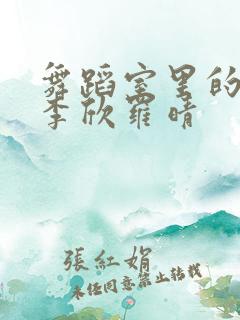 舞蹈室里的
李欣羅晴
張紅娟
未经同意禁止转载